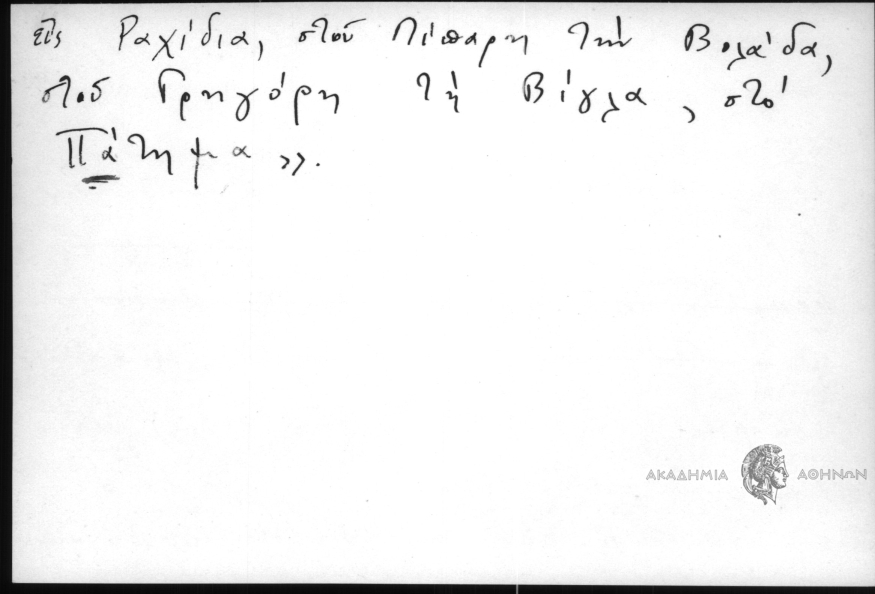 εἰς Ραχίδια, στοῦ Πίπαρη τὴν Βολάδα,
στοῦ Γρηγόρη τὴ Βίγλα, στὸ
Πάτημα».
ΑΚΑΔΗΜΙΑ ΑΘΗΝΩΝ